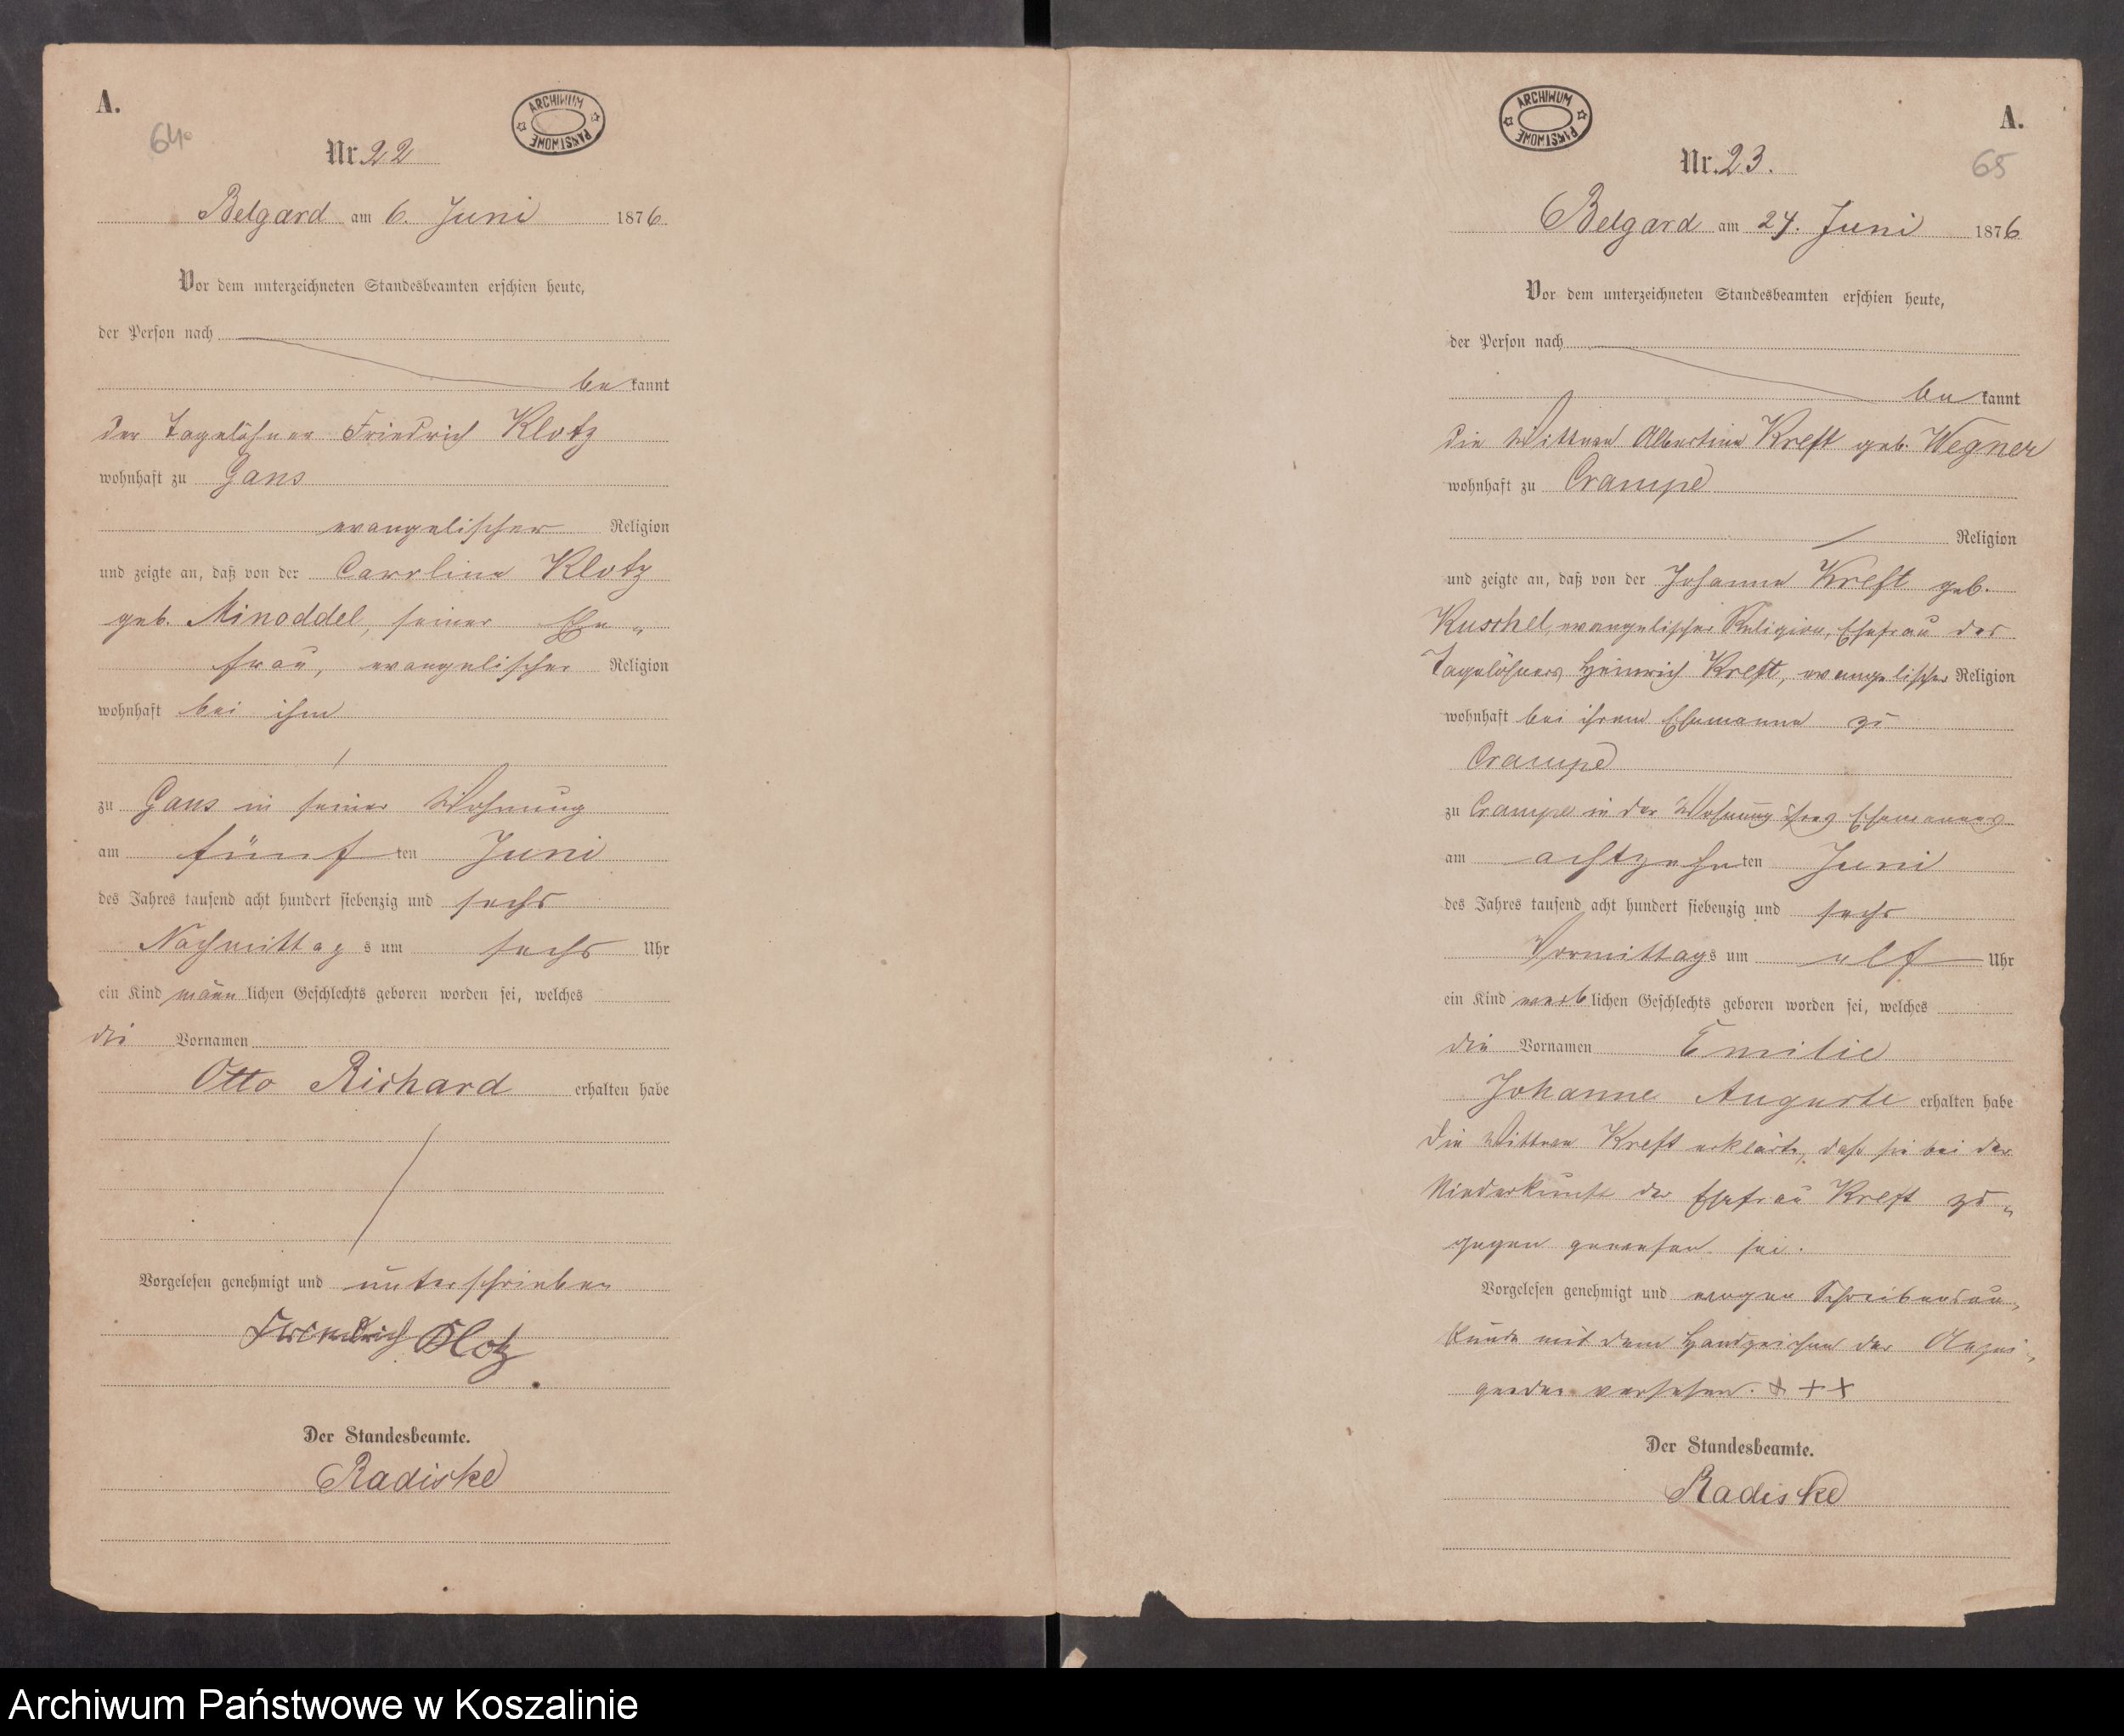 A.
64.
ARCHIWUM PAŃSTWOWE
Nr. 22
Belgard am 6. Juni 1876.
Vor dem unterzeichneten Standesbeamten erschien heute,
der Person nach
be kannt
der Tagelöhner Friedrich Klotz
wohnhaft zu Gans
evangelischer Religion
und zeigte an, daß von der Caroline Klotz
geb. Minoddel, seiner Ehe„
frau, evangelischer Religion
wohnhaft bei ihm
zu Gans in seiner Wohnung
am fünf ten Juni
des Jahres tausend acht hundert siebenzig und sechs
Nachmittag s um sechs Uhr
ein Kind männ lichen Geschlechts geboren worden sei, welches
die Vornamen
Otto Richard erhalten habe
Vorgelesen genehmigt und unterschrieben
Friedrich Klotz
Der Standesbeamte.
Radiske
ARCHIWUM PAŃSTWOWE
A.
65
Nr. 23.
Belgard am 24. Juni 1876
Vor dem unterzeichneten Standesbeamten erschien heute,
der Person nach
be kannt
die Wittwe Albertine Kreft geb. Wegner
wohnhaft zu Crampe
Religion
und zeigte an, daß von der Johanne Kreft geb.
Kuschel, evangelischer Religion, Ehefrau des
Tagelöhners Heinrich Kreft, evangelischer Religion
wohnhaft bei ihrem Ehemanne zu
Crampe
zu Crampe in der Wohnung ihres Ehemannes
am achtzehn ten Juni
des Jahres tausend acht hundert siebenzig und sechs
Vormittags um elf Uhr
ein Kind weib lichen Geschlechts geboren worden sei, welches
die Vornamen Emilie
Johanne Auguste erhalten habe
Die Wittwe Kreft erklärte, daß sie bei der
Niederkunft der Ehefrau Kreft zu„
gegen gewesen sei.
Vorgelesen genehmigt und wegen Schreibensun„
kunde mit dem Handzeichen der Anzei„
genden versehen. + + +
Der Standesbeamte.
Radiske
Archiwum Państwowe w Koszalinie